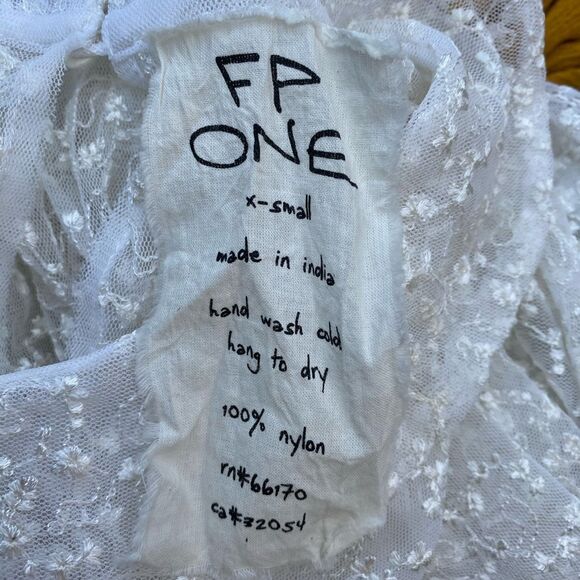 FP
ONE
x-small
made in india
hand wash cold
hang to dry
100% nylon
rn#66170
ca#32054